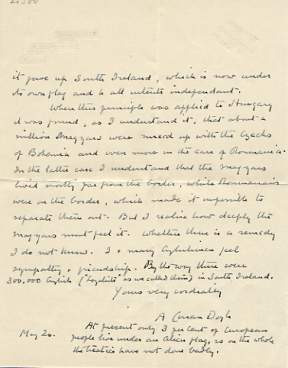 it gave up South Ireland, which is now under
its own flag and to all intents independent.
When this principle was applied to Hungary
it was found, as I understand it, that about a
million Magyars were mixed up with the Czechs
of Bohemia and even more in the case of Roumania.
In the latter case I understand that the Magyars
lived mostly far from the border, while Roumanians
were on the border, which made it impossible to
separate them out. But I realise how deeply the
Magyars must feel it. Whether there is a remedy
I do not know. I & many Englishmen feel
sympathy & friendship. By the way there were
300,000 English (Loyalists as we called them) in South Ireland.
Yours very cordially
A Conan Doyle
May 20.
At present only 3 per cent of European
people live under an alien flag, so on the whole
the treaties have not done badly.